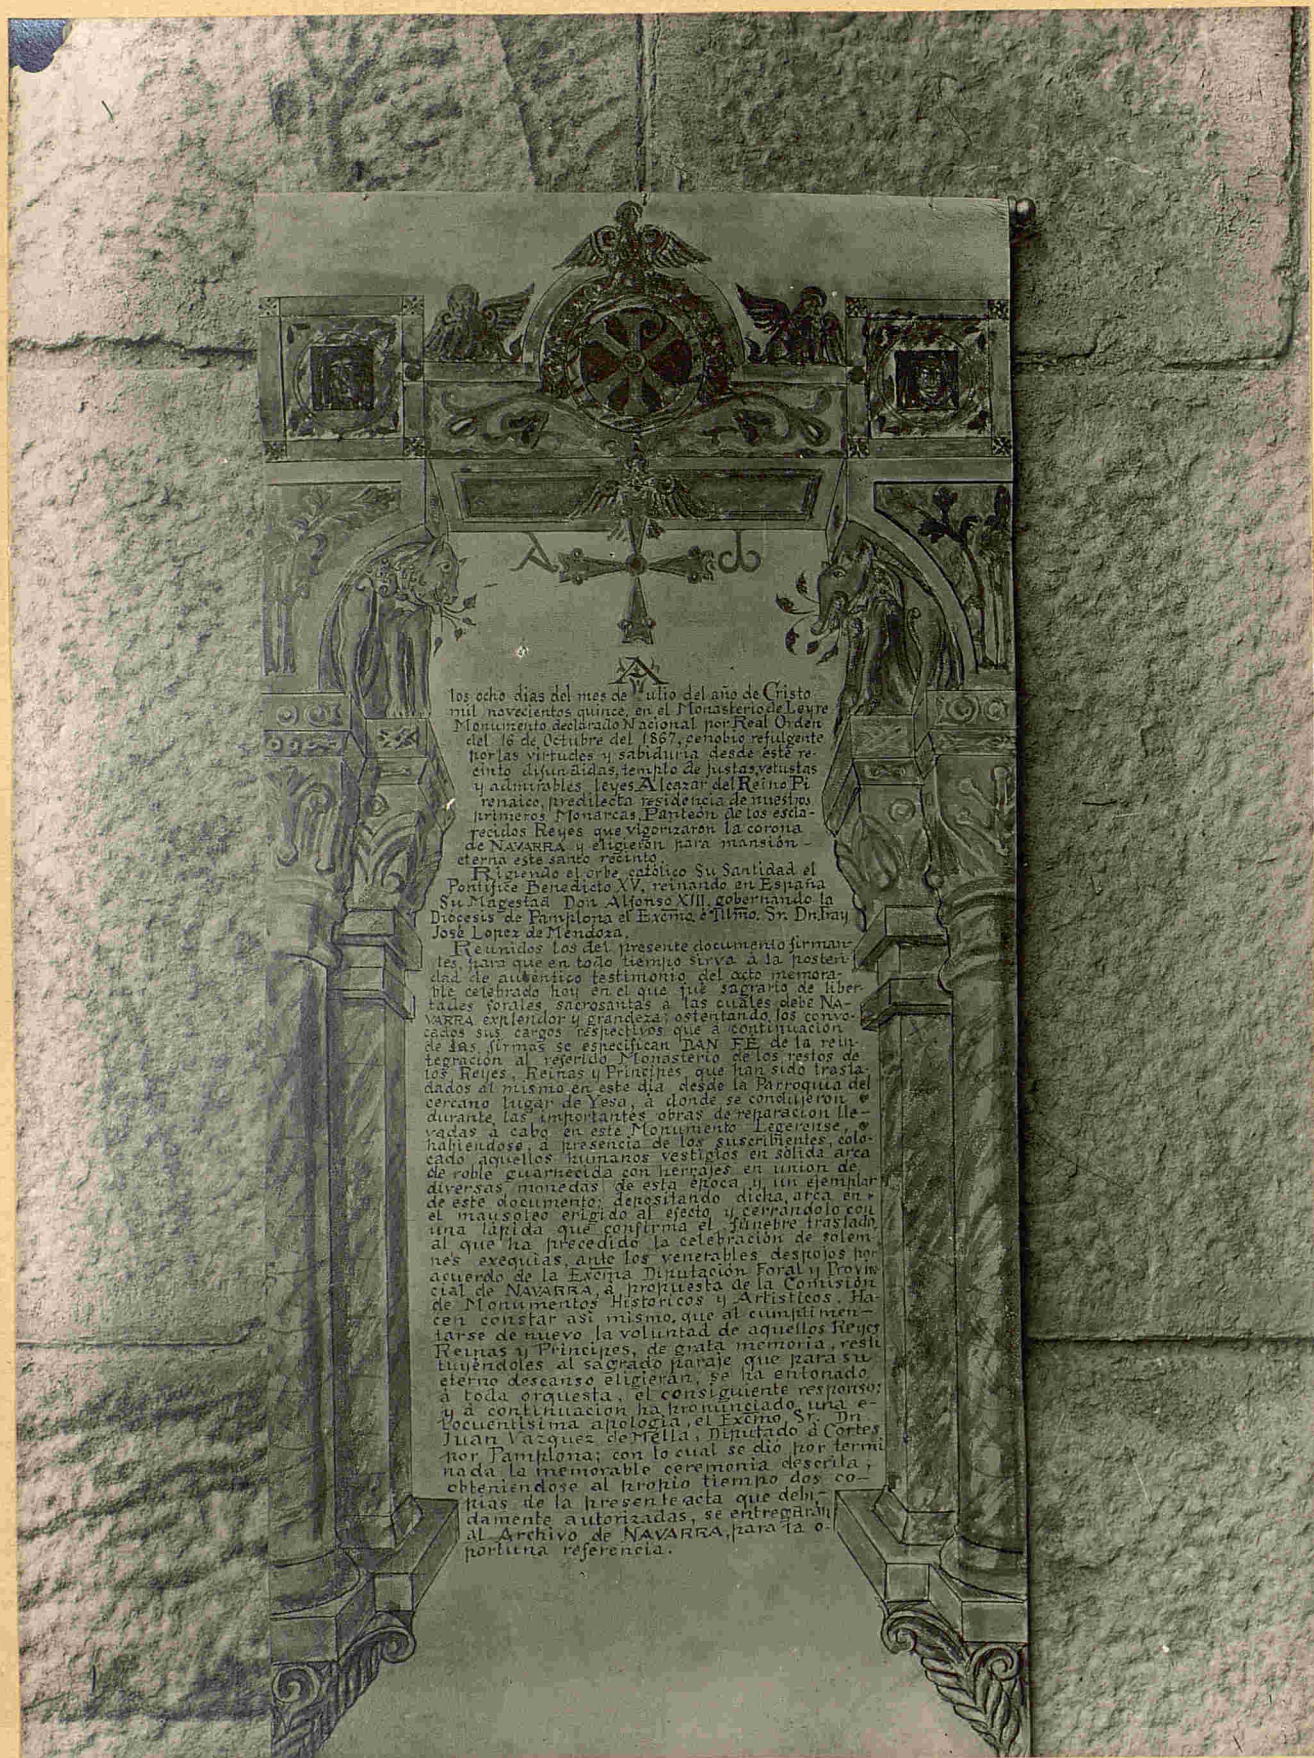 A ω
A
los ocho dias del mes de Julio del año de Cristo
mil novecientos quince, en el Monasterio de Leyre
Monumento declarado Nacional por Real Orden
del 16 de Octubre del 1867, cenobio refulgente
por las virtudes y sabiduria desde este re-
cinto difundidas, templo de justas, vetustas
y admirables leyes Alcazar del Reino Pi
renaico, predilecta residencia de nuestros
primeros Monarcas, Panteón de los escla-
recidos Reyes que vigorizaron la corona
de NAVARRA y eligieron para mansión-
eterna este santo recinto.
Rigiendo el orbe católico Su Santidad el
Pontifice Benedicto XV, reinando en España
Su Magestad Don Alfonso XIII, gobernando la
Diócesis de Pamplona el Excmo. é Illmo. Sr. Dn. Fray
José Lopez de Mendoza.
Reunidos los del presente documento firman-
tes, para que en todo tiempo sirva á la posteri-
dad de auténtico testimonio del acto memora-
ble celebrado hoy en el que fué sagrario de liber-
tades forales, sacrosantas á las cuales debe NA-
VARRA explendor y grandeza; ostentando los convo-
cados sus cargos respectivos que á continuación
de las firmas se especifican DAN FE de la rein-
tegración al referido Monasterio de los restos de
los Reyes, Reinas y Principes, que han sido trasla-
dados al mismo en este dia desde la Parroquia del
cercano lugar de Yesa, á donde se condujeron
durante las importantes obras de reparación lle-
vadas á cabo en este Monumento Legerense,
habiendose, á presencia de los suscribientes, colo-
cado aquellos humanos vestigios en sólida arca
de roble guarnecida con herrajes en union de
diversas monedas de esta época y un ejemplar
de este documento; depositando dicha arca en
el mausoleo erigido al efecto y cerrándolo con
una lápida que confirma el fúnebre traslado,
al que ha precedido la celebración de solem-
nes exequias, ante los venerables despojos por
acuerdo de la Excma Diputación Foral y Provin
cial de NAVARRA, á propuesta de la Comisión
de Monumentos Históricos y Artísticos. Ha-
cen constar asi mismo, que al cumplimen-
tarse de nuevo la voluntad de aquellos Reyes
Reinas y Principes, de grata memoria, resti
tuyéndoles al sagrado paraje que para su
eterno descanso eligieran, se ha entonado
á toda orquesta, el consiguiente responso;
y á continuación ha pronunciado una e-
locuentisima apologia, el Excmo. Sr. Dn
Juan Vazquez de Mella, Diputado á Cortes
por Pamplona; con lo cual se dió por termi
nada la memorable ceremonia descrita,
obteniéndose al propio tiempo dos co-
pias de la presente acta que debi-
damente autorizadas, se entregarán
al Archivo de NAVARRA, para la o-
portuna referencia.